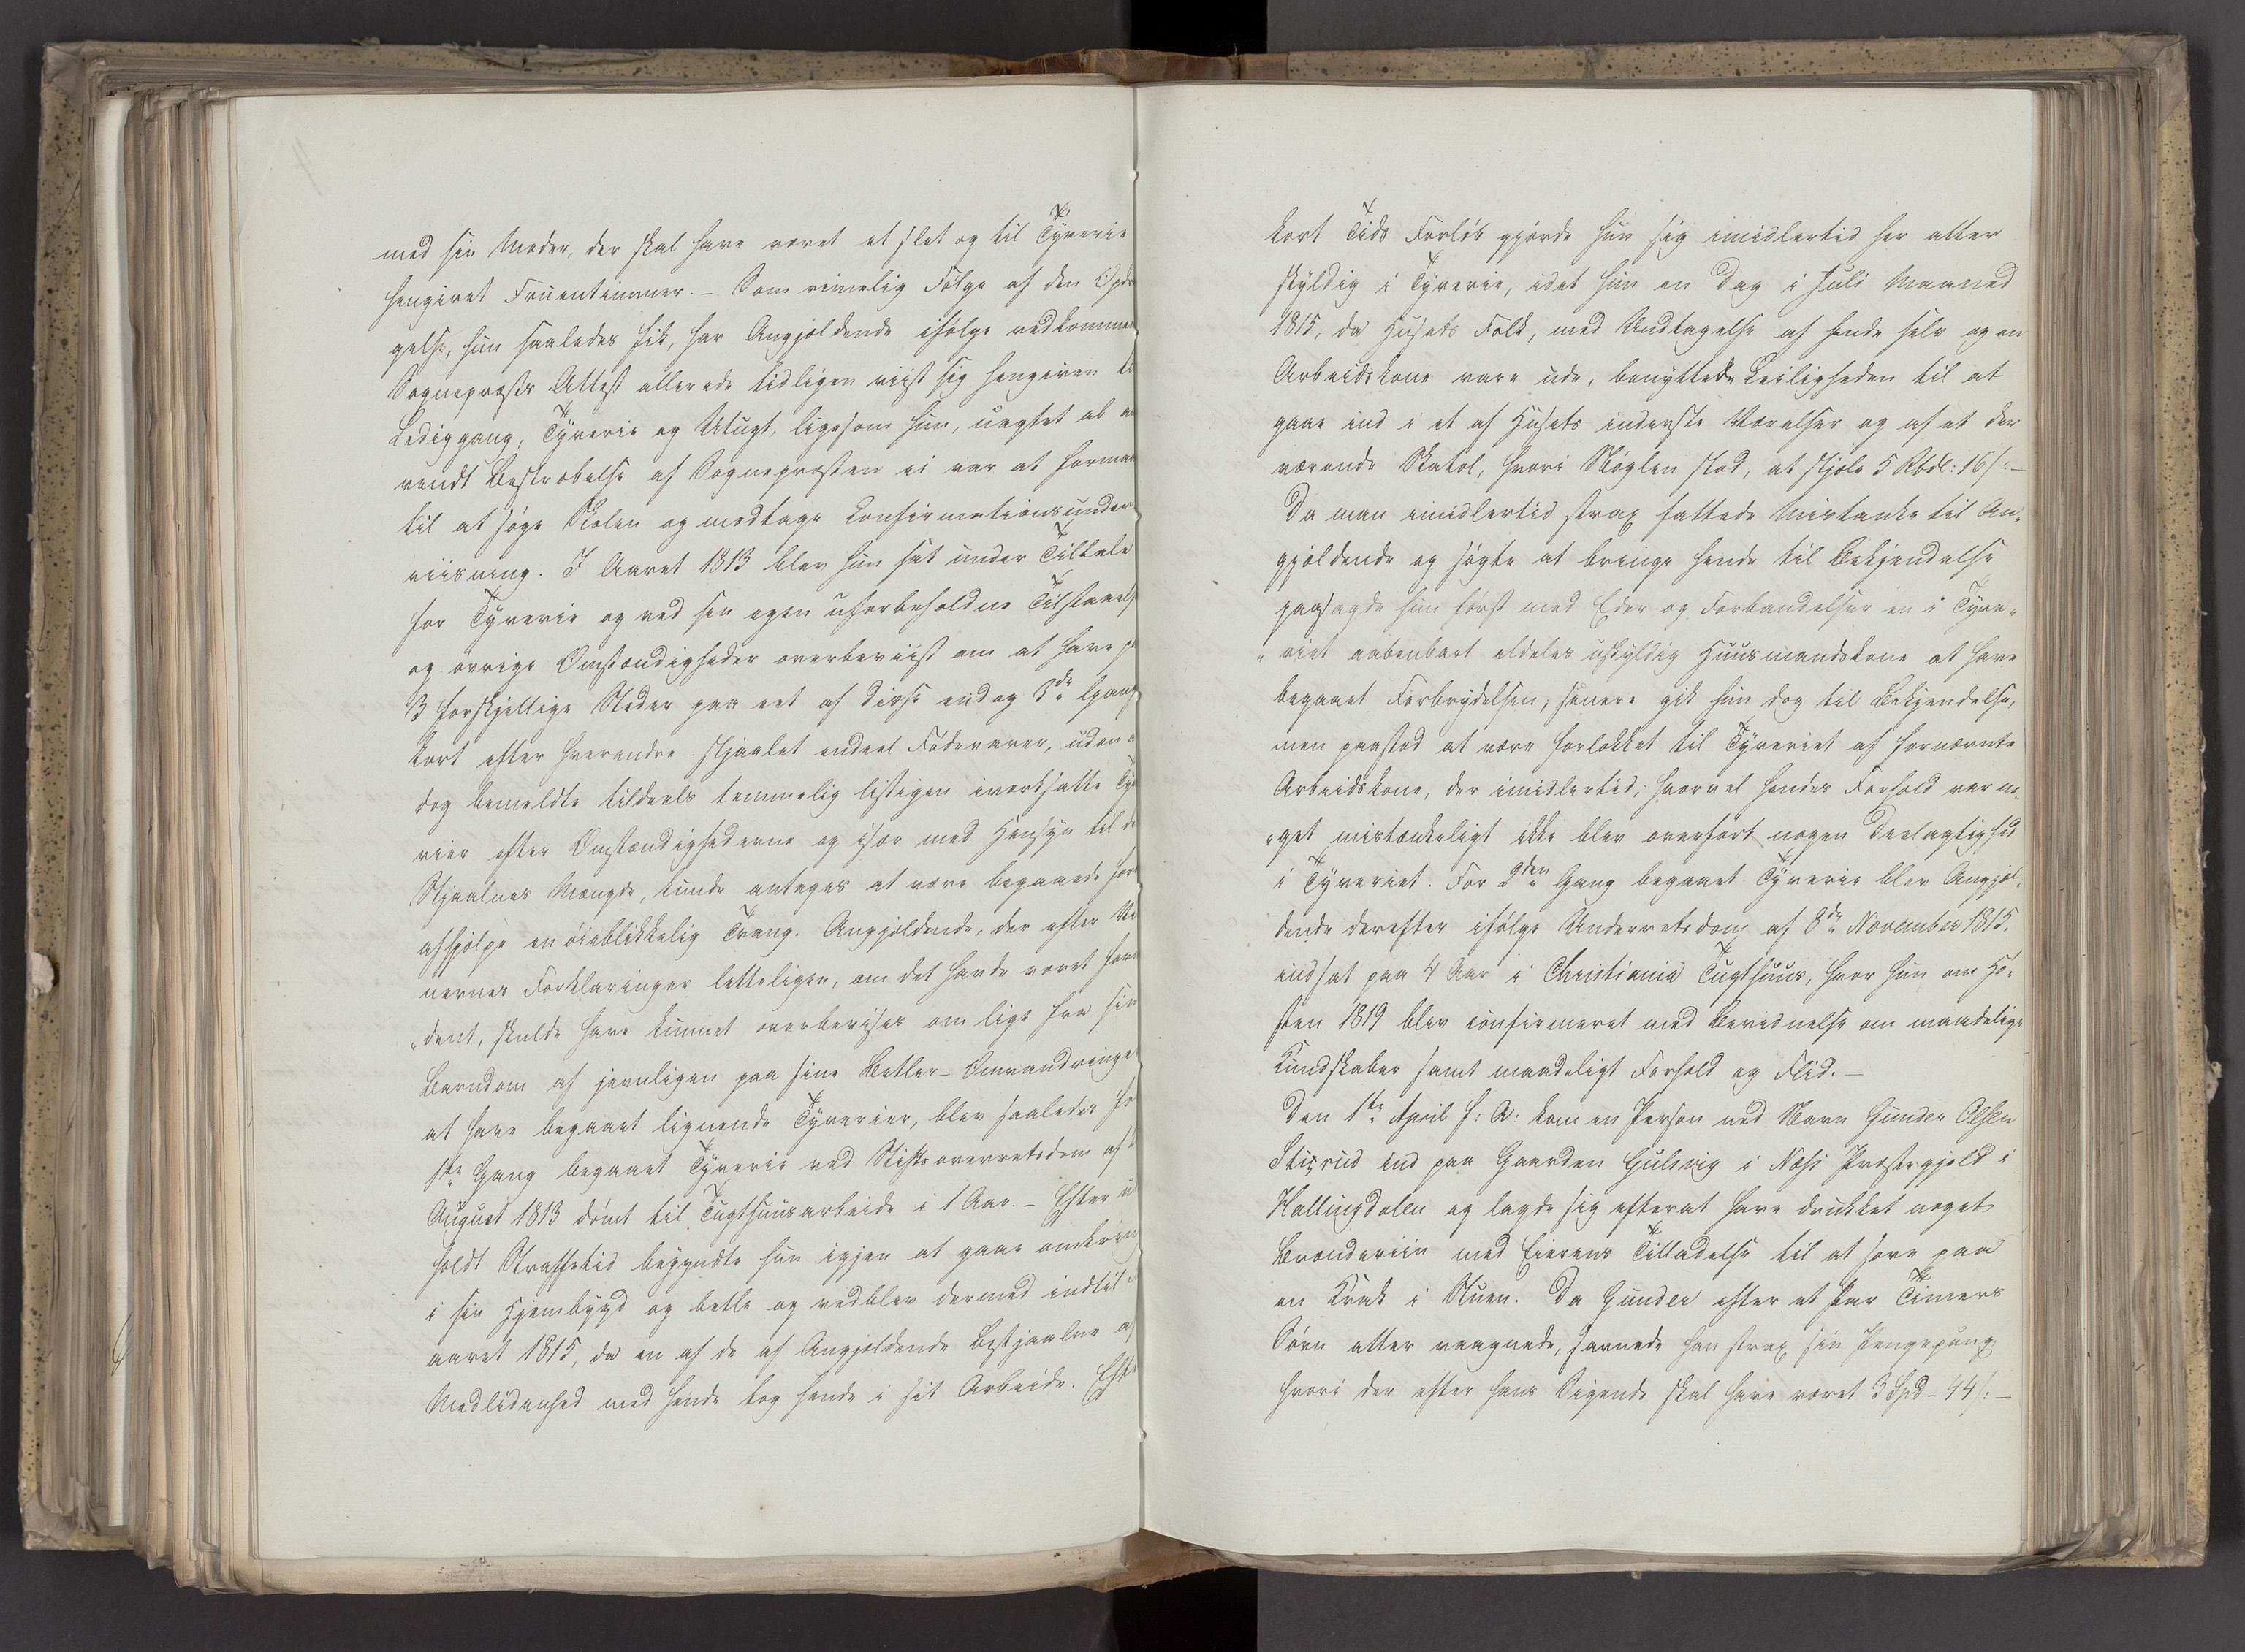 med sin Moder, der skal have været et slet og til Tyverie
hengivet Fruentimmer. - Som rimelig Følge af den Opdra
gelse, hun saaledes fik, har Angjældende ifølge vedkommen
Sognepræsts Attest allerede tidligen viist sig hengiven ti
Lediggang, Tyverie og Utugt, ligesom hun, uagtet al an
vendt Bestræbelse af Sognepræsten ei var at forma
til at søge Skolen og modtage Confirmationsunder
viisning. I Aaret 1813 blev hun sat under Tiltale
for Tyverie og ved sin egen uforbeholdne Tilstaaels
og øvrige Omstændigheder overbeviist om at have p
3 forskjellige Steder paa eet af disse endog 3de Gang
kort efter hverandre - stjaalet endeel Fødevarer, uden a
dog bemeldte tildeels temmelig listigen iværksatte Ty
rier efter Omstændighederne og især med Hensyn til de
Stjaalnes Mængde, kunde antages at være begaaede for
afhjelpe en øieblikkelig Trang. Angjældende, der efter Vi
nernes Forklaringer letteligen, om det havde været for
"dent, skulde have kunnet overbevises om lige fra sin
Barndom af jevnligen paa sine Betler-Omvandringer
at have begaaet lignende Tyverier, blev saaledes fo
1ste Gang begaaet Tyverie ved Stiftsoverretsdom af
August 1813 dømt til Tugthuusarbeide i 1 Aar. - Efter u
holdt Straffetid begyndte hun igjen at gaae omkring
i sin Hjembygd og betle og vedblev dermed indtil
aaret 1815, da en af de af Angjældende Bestjaalne af
Medlidenhed med hende tog hende i sit Arbeide. Eft
kort Tids Forløb gjorde hun sig imidlertid her atter
skyldig i Tyverie, idet hun en Dag i Juli Maaned
1815, da Husets Folk, med Undtagelse af hende selv og en
Arbeidskone vare ude, benyttede Leiligheden til at
gaae ind i et af Husets inderste Værelser og af et der
værende Skatol, hvori Nøglen stod, at stjæle 5 Rbdl: 16 s: -
Da man imidlertid strax fattede Mistanke til An-
gjældende og søgte at bringe hende til Bekjendelse
paasagde hun først med Eder og Forbandelser en i Tyve-
"riet aabenbart aldeles uskyldig Huusmandskone at have
begaaet Forbrydelsen; senere gik hun dog til Bekjendelse,
men paastod at være forlokket til Tyveriet af fornævnte
Arbeidskone, der imidlertid, hvorvel hendes Forhold var no-
"get mistænkeligt ikke blev overført nogen Deelagtighed
i Tyveriet. For 2den Gang begaaet Tyverie blev Angjæl-
dende derefter ifølge Underretsdom af 8de November 1815,
indsat paa 4 Aar i Christiania Tugthuus, hvor hun om Hø-
sten 1819 blev confirmeret med Bevidnelse om maadelige
Kundskaber samt maadeligt Forhold og Flid. -
Den 1ste April f: A: kom en Person ved Navn Gunder Olsen
Stixrud ind paa Gaarden Gulsvig i Næss Præstegjeld i
Hallingdalen og lagde sig efterat have drukket noget
Brændeviin med Eierens Tilladelse til at sove paa
en Krak i Stuen. Da Gunder efter et Par Timers
Søvn atter vaagnede, savnede han strax sin Pengepung
hvori der efter hans Sigende skal have været 3 Spd - 44 s: -